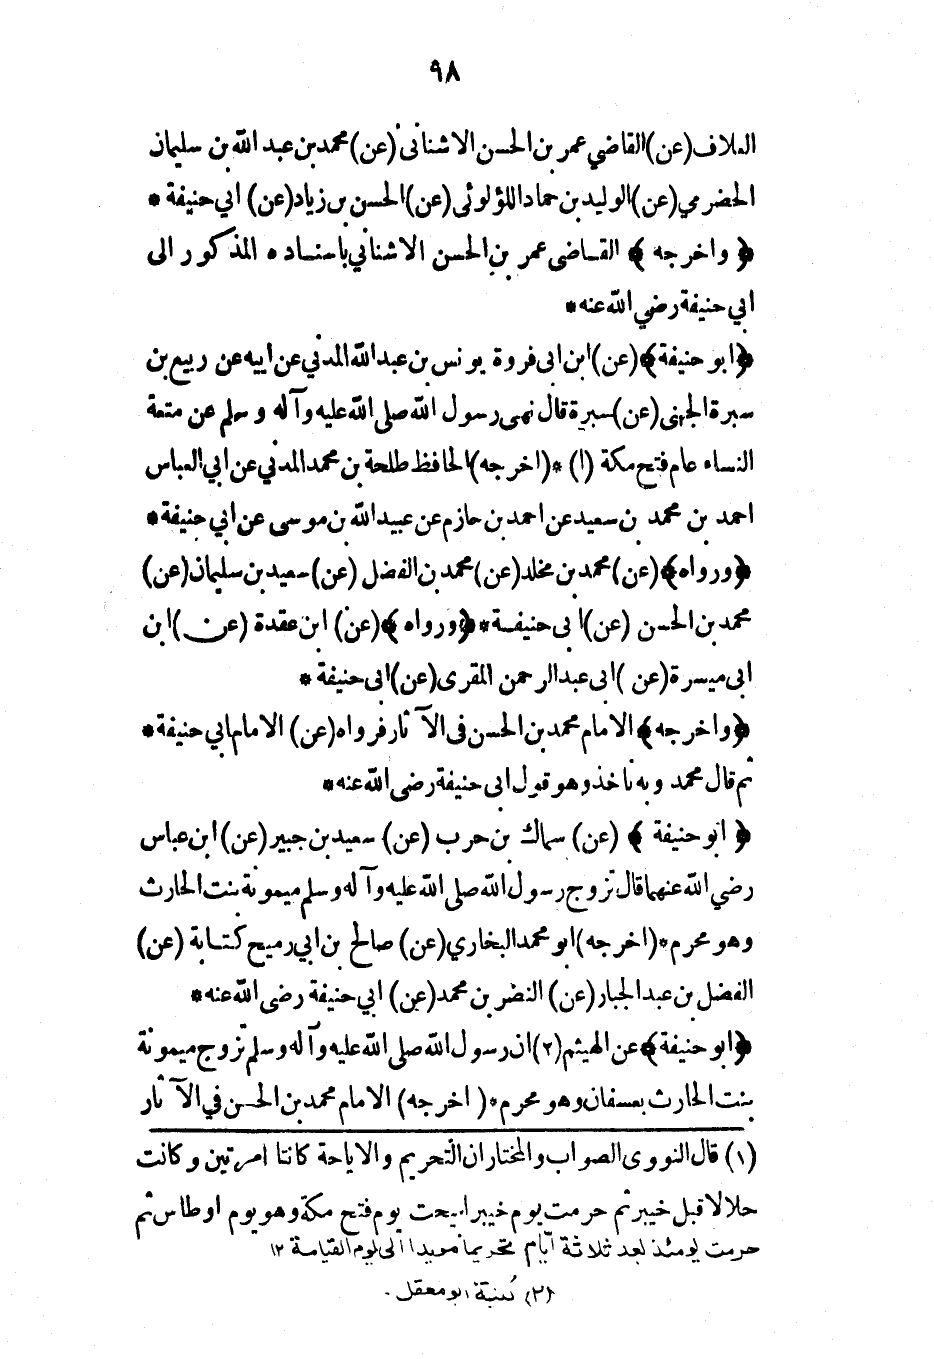 ٩٨
العلاف (عن) القاضي عمر بن الحسن الاشنانى (عن) محمد بن عبد الله بن سليمان
الحضرمي (عن) الوليد بن حماد اللؤلوئى (عن) الحسن بن زياد (عن) ابي حنيفة *
﴿ واخرجه ﴾ القاضى عمر بن الحسن الاشناني باسناده المذكور الى
ابي حنيفة رضي الله عنه *
﴿ابو حنيفة﴾ (عن) ابن ابى فروة يونس بن عبد الله المدني عن ابيه عن ربيع بن
سبرة الجهنى (عن) سبرة قال نهى رسول الله صلى الله عليه وآله وسلم عن متعة
النساء عام فتح مكة (١) * (اخرجه) الحافظ طلحة بن محمد المدني عن ابي العباس
احمد بن محمد بن سعيد عن احمد بن حازم عن عبيد الله بن موسى عن ابي حنيفة *
﴿ورواه﴾ (عن) محمد بن مخلد (عن) محمد بن الفضل (عن) سعيد بن سليمان (عن)
محمد بن الحسن (عن) ابى حنيفة * ﴿ورواه﴾ (عن) ابن عقدة (عن) ابن
ابى ميسرة (عن) ابى عبد الرحمن المقرى (عن) ابى حنيفة *
﴿واخرجه﴾ الامام محمد بن الحسن فى الآثار فرواه (عن) الامام ابي حنيفة *
ثم قال محمد وبه ناخذ وهو قول ابى حنيفة رضى الله عنه *
﴿ ابو حنيفة ﴾ (عن) سماك بن حرب (عن) سعيد بن جبير (عن) ابن عباس
رضي الله عنهما قال تزوج رسول الله صلى الله عليه وآله وسلم ميمونة بنت الحارث
وهو محرم * (اخرجه) ابو محمد البخاري (عن) صالح بن ابي رميح كتابة (عن)
الفضل بن عبد الجبار (عن) النضر بن محمد (عن) ابي حنيفة رضى الله عنه *
﴿ابو حنيفة﴾ عن الهيثم (٢) ان رسول الله صلى الله عليه وآله وسلم تزوج ميمونة
بنت الحارث بعسفان وهو محرم * (اخرجه) الامام محمد بن الحسن في الآثار
(١) قال النووى الصواب والمختار ان التحريم والاباحة كانتا مرتين وكانت
حلالا قبل خيبر ثم حرمت يوم خيبر ابيحت يوم فتح مكة وهو يوم اوطاس ثم
حرمت يومئذ بعد ثلاثة ايام تحريما مؤبدا الى يوم القيامة ١٢
(٢) كنيته ابو معقل .